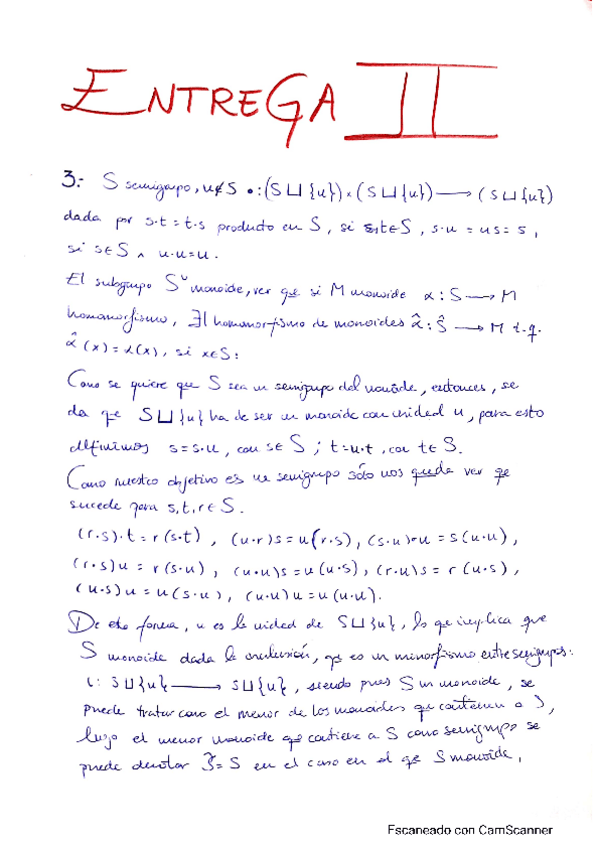 ENTREGA II
3.- S semigrupo, u∉S •:(S⊔{u})×(S⊔{u})⟶(S⊔{u})
dada por s·t=t·s producto en S, si s,t∈S, s·u=us=s,
si s∈S ∧ u·u=u.
El subgrupo Sᵘ monoide, ver qe si M monoide α:S⟶M
homomorfismo, ∃! homomorfismo de monoides α̂:Ŝ⟶M t.q.
α̂(x)=α(x), si x∈S:
Como se quiere que S sea un semigrupo del monoide, entonces, se
da que S⊔{u} ha de ser un monoide con unidad u, para esto
definimos s=s·u, con s∈S ; t=u·t, con t∈S.
Como nuestro objetivo es un semigrupo sólo nos queda ver qe
sucede para s,t,r∈S.
(r·s)·t=r(s·t), (u·r)s=u(r·s), (s·u)·u=s(u·u),
(r·s)u=r(s·u), (u·u)s=u(u·s), (r·u)s=r(u·s),
(u·s)u=u(s·u), (u·u)u=u(u·u).
De esta forma, u es la unidad de S⊔{u}, lo qe implica que
S monoide dada la inclusión, qe es un monorfismo entre semigrupos:
i: S⊔{u}⟶S⊔{u}, siendo pues S un monoide, se
puede tratar como el menor de los monoides qe contienen a S,
luego el menor monoide qe contiene a S como semigrupo se
puede denotar Ŝ=S en el caso en el qe S monoide,
Escaneado con CamScanner